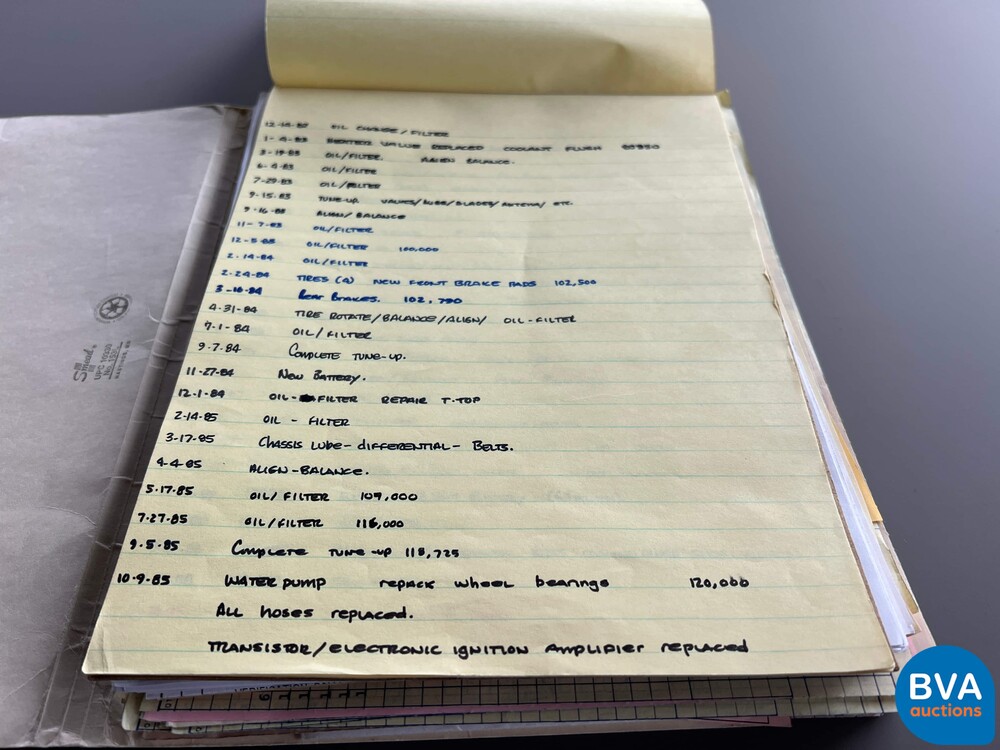 12-15-82 OIL CHANGE/FILTER
1-4-83 HEATER VALVE REPLACED COOLANT FLUSH
3-19-83 OIL/FILTER. ALIGN BALANCE.
6-4-83 OIL/FILTER
7-29-83 OIL/FILTER
9-15-83 TUNE-UP VALVES/LUBE/BLADES/ANTENA/ ETC.
9-16-83 ALIGN/BALANCE
11-7-83 OIL/FILTER
12-5-83 OIL/FILTER 100,000
2-14-84 OIL/FILTER
2-24-84 TIRES (4) NEW FRONT BRAKE PADS 102,500
3-10-84 REAR BRAKES. 102,790
4-31-84 TIRE ROTATE/BALANCE/ALIGN/ OIL-FILTER
7-1-84 OIL/FILTER
9.7.84 COMPLETE TUNE-UP.
11-27-84 NEW BATTERY.
12.1.84 OIL-FILTER REPAIR T-TOP
2-14-85 OIL - FILTER
3-17-85 CHASSIS LUBE-DIFFERENTIAL- BELTS.
4-4-85 ALIGN-BALANCE.
5.17.85 OIL/FILTER 109,000
7-27-85 OIL/FILTER 116,000
9.5.85 COMPLETE TUNE-UP 118,725
10-9-85 WATER PUMP repack wheel bearings 120,000
ALL hoses replaced.
TRANSISTOR/ELECTRONIC IGNITION AMPLIFIER replaced
Smead
UPC 10330
HASTINGS, MN
BVA
auctions